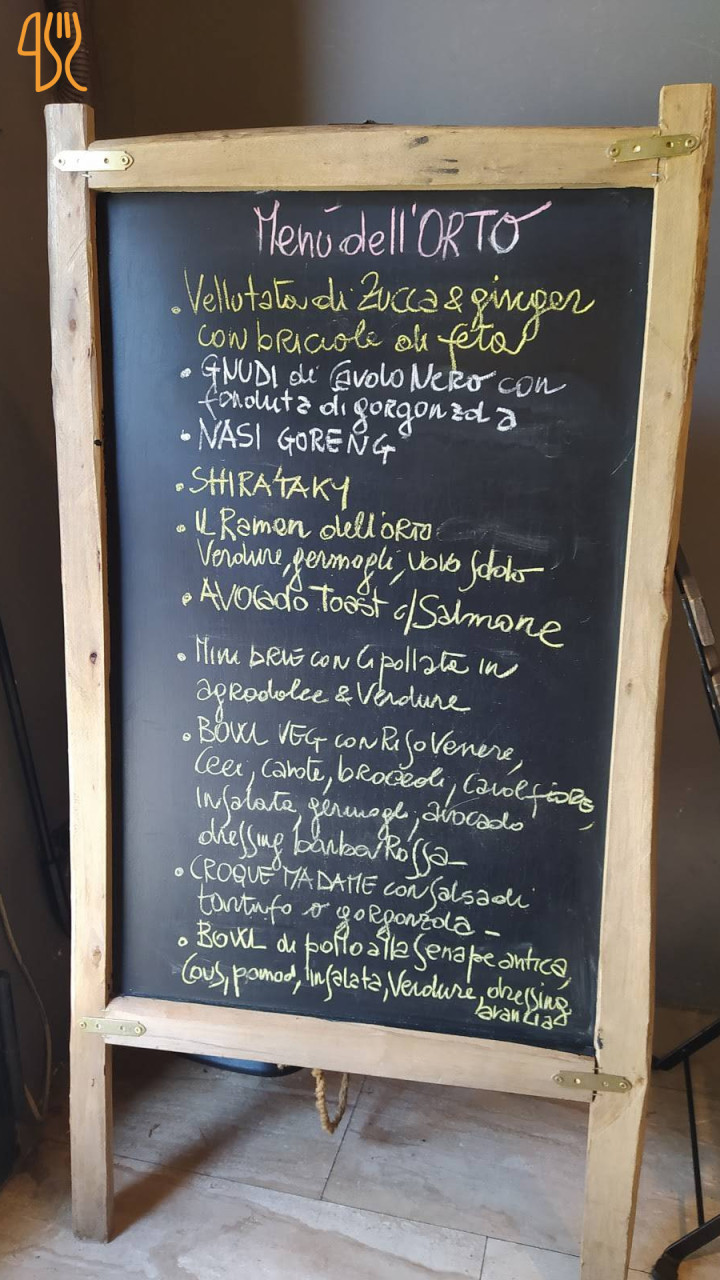 Menú dell'ORTO
• Vellutata di Zucca & ginger
con briciole di feta
• GNUDI di Cavolo Nero con
fonduta di gorgonzola
• NASI GORENG
• SHIRATAKY
• IL Ramen dell'ORTO
Verdure, germogli, uovo sodo
• AVOCADO Toast c/Salmone
• Mini BRIE con Cipollata in
agrodolce & Verdure
• BOWL VEG con Riso Venere,
Ceci, carote, broccoli, cavolfiore,
Insalata, germogli, avocado
dressing barbaRossa
• CROQUE MADAME con salsa di
tartufo o gorgonzola -
• BOWL di pollo alla Senape antica,
Cous, pomod, Insalata, Verdure, dressing
arancia